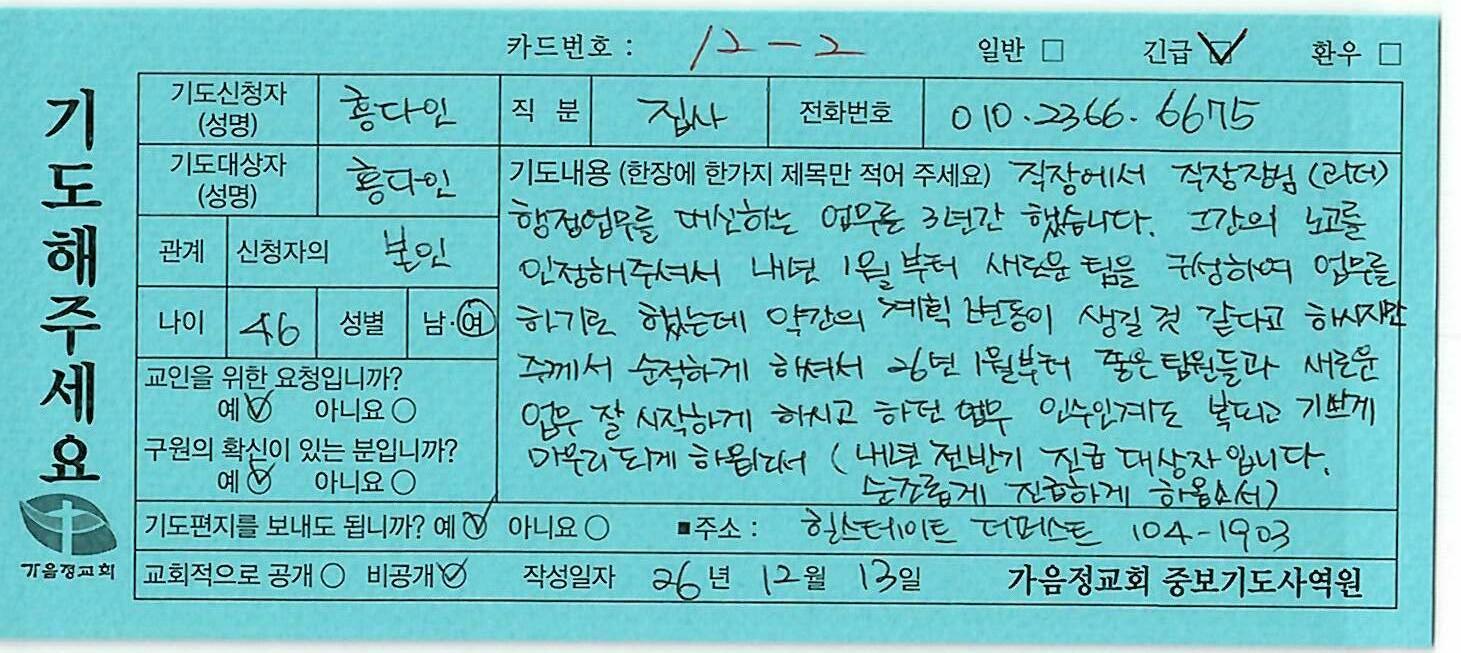 카드번호 : 12-2 일반 □ 긴급 ☑ 환우 □
기도해주세요
기도신청자 (성명) 홍다인 직 분 집사 전화번호 010.2366.6675
기도대상자 (성명) 홍다인
관계 신청자의 본인
나이 46 성별 남·여
교인을 위한 요청입니까?
예 ☑ 아니요 ○
구원의 확신이 있는 분입니까?
예 ☑ 아니요 ○
기도내용 (한장에 한가지 제목만 적어 주세요) 직장에서 직장장님
행정업무를 대신하는 업무를 3년간 했습니다. 그간의 노고를
인정해주셔서 내년 1월부터 새로운 팀을 구성하여 업무를
하기로 했는데 약간의 계획 변동이 생길 것 같다고 하시지만
주께서 순적하게 하셔서 26년 1월부터 좋은 팀원들과 새로운
업무 잘 시작하게 하시고 하던 업무 인수인계도 복되고 기쁘게
마무리되게 하옵소서 (내년 전반기 진급 대상자입니다.
순조롭게 진급하게 하옵소서)
기도편지를 보내도 됩니까? 예 ☑ 아니요 ○ ■주소 : 힐스테이트 더퍼스트 104-1903
교회적으로 공개 ○ 비공개 ☑ 작성일자 26년 12월 13일 가음정교회 중보기도사역원
가음정교회